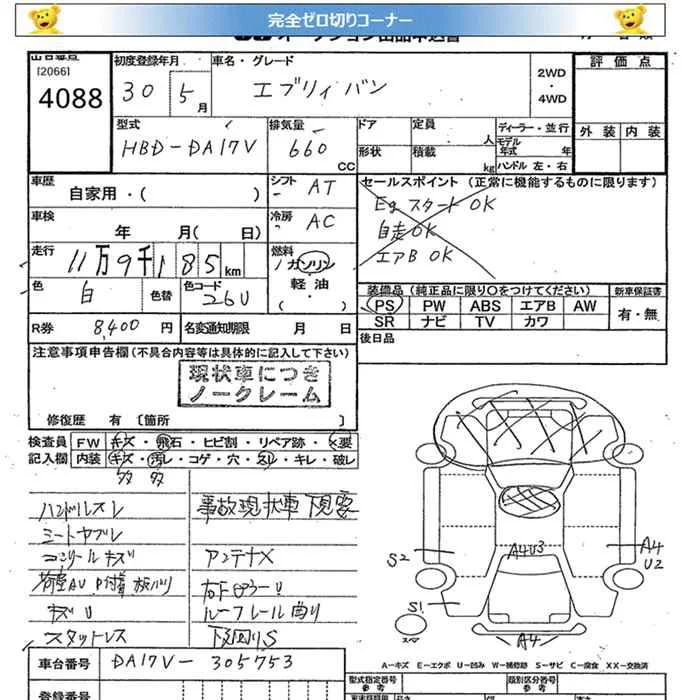 完全ゼロ切りコーナー
[2066]
4088
初度登録年月
30 5月
車名・グレード
エブリィ バン
2WD
・
4WD
評価点
外装 内装
型式
HBD-DA17V
排気量
660 CC
ドア
定員 人
ディーラー・並行
モデル年式 年
形状
積載 kg
ハンドル 左・右
車歴
自家用・( )
シフト AT
セールスポイント (正常に機能するものに限ります)
Eg スタート OK
自走 OK
エアB OK
車検 年 月( 日)
冷房 AC
走行 11万9千185km
燃料
ガソリン
軽油
( ・ )
色 白 色替
色コード 26U
装備品(純正品に限り○をつけてください)
PS PW ABS エアB AW
SR ナビ TV カワ
新車保証書
有・無
R券 8,400円
名変通知期限 月 日
後日品
注意事項申告欄(不具合内容等は具体的に記入して下さい)
現状車につき
ノークレーム
修復歴 有 [箇所 ]
検査員 FW キズ・飛石・ヒビ割・リペア跡・×要
記入欄 内装 キズ・汚レ・コゲ・穴・スリ・キレ・破レ
多 多
ハンドルスレ
事故現状車 下見要
アンテナX
キズU
ルーフレール曲り
スタットレス
下回りS
S2
A4U3
A4
U2
S1
スペア
A4
A−キズ E−エクボ U−凹み W−補修跡 S−サビ C−腐食 XX−交換済
車台番号 DA17V-305753
型式指定番号
参考
類別区分番号
参考
登録番号